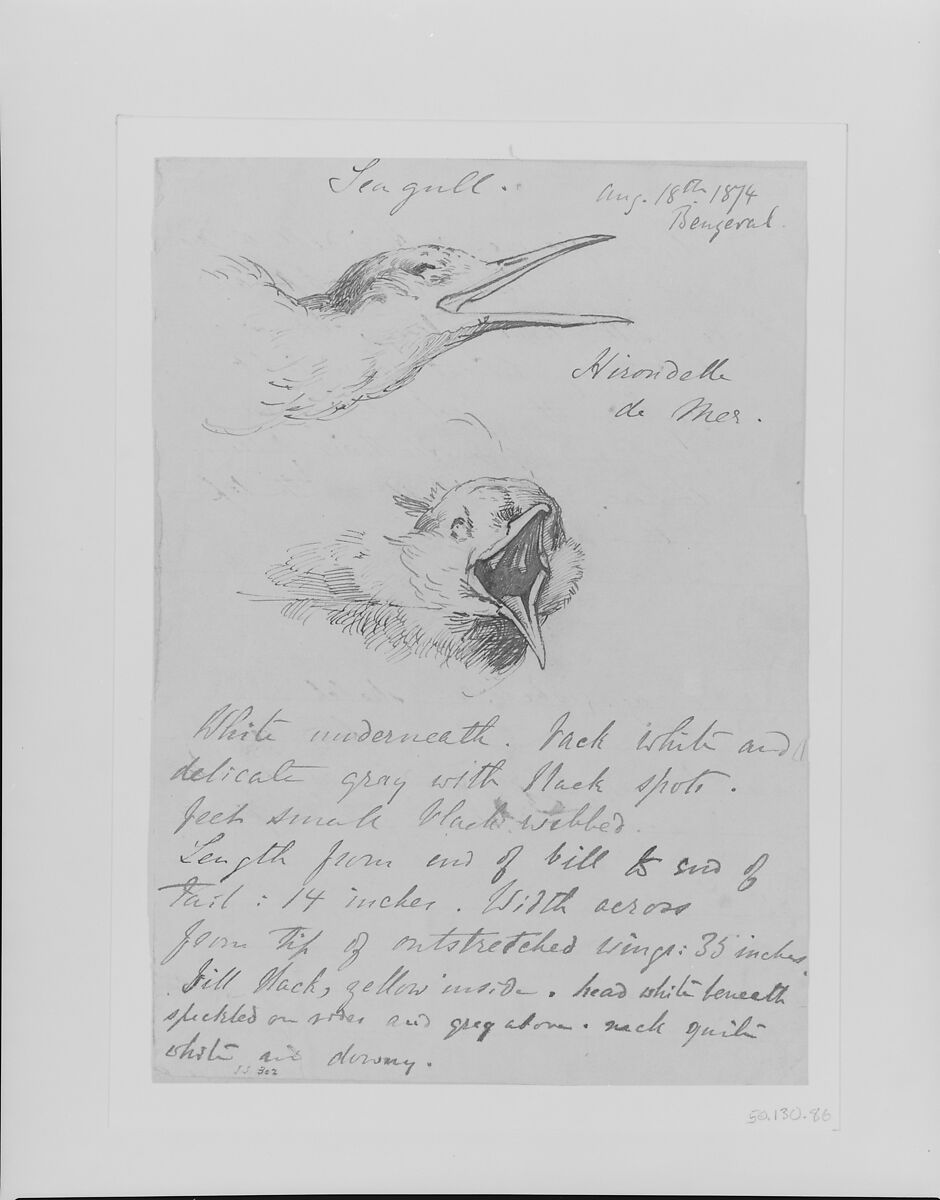 Sea gull.
Aug. 18th 1874
Benzeval.
Hirondelle
de Mer.
White underneath. Back white and
delicate gray with black spots.
feet small black webbed.
Length from end of bill to end of
Tail : 14 inches. Width across
from tip of outstretched wings: 35 inches
Bill black, yellow inside. head white beneath
speckled on sides and grey above. neck quite
white and downy.
50.130.86